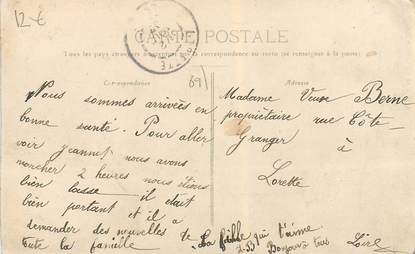 12 €
CARTE POSTALE
Tous les pays étrangers n'acceptent pas la correspondance au recto (se renseigner à la poste)
Correspondance
89
Nous sommes arrivées en
bonne santé. Pour aller
voir jeannot nous avons
marcher 2 heures nous étions
bien lasse il était
bien portant et il a
demander des nouvelles de
toute la famille
La fidèle qui t'aime
Bonjour à tous
Adresse
Madame Veuve Berne
propriétaire rue Côte-
Granger à
Lorette
Loire